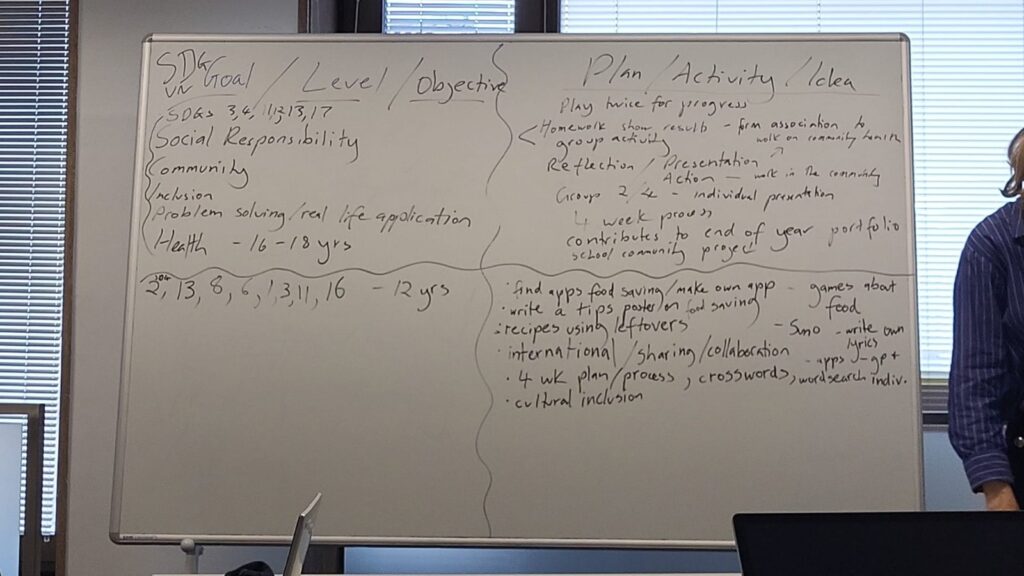 SDG Goal / Level / Objective
UN
SDGs 3,4, 11,12,13,17
Social Responsibility
Community
Inclusion
Problem solving/real life application
Health - 16-18 yrs
2, 13, 8, 6, 1, 3, 11, 16 - 12 yrs
Plan / Activity / Idea
Play twice for progress
Homework show results - form association to
group activity work on community
Reflection / Presentation
Action - work in the community
Groups 2/4 - individual presentation
4 week process
contributes to end of year portfolio
school community project
· find apps food saving/make own app - games about
food
· write a tips poster/on food saving
· recipes using leftovers - Suno - write own
lyrics
· international/sharing/collaboration - apps - gp +
· 4 wk plan/process, crosswords, wordsearch indiv.
· cultural inclusion